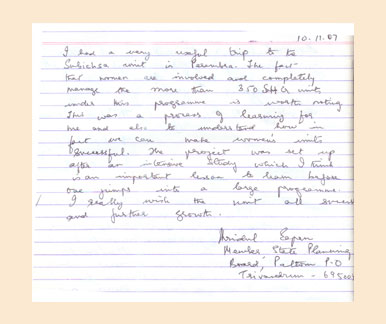 10.11.07
I had a very useful trip to the
Subicsha unit in Perambra. The fact
that women are involved and completely
manage the more than 350 SHG units
under this programme is worth noting
This was a process of learning for
me and also to understand how in
fact we can make women's units
successful. The project was set up
after an study which I think
is an important lesson to learn before
one jumps into a large programme.
I really wish the unit all success
and further growth.
Mridul Eapen
Member State Planning
Board, Pattom P.O
Trivandrum - 695004